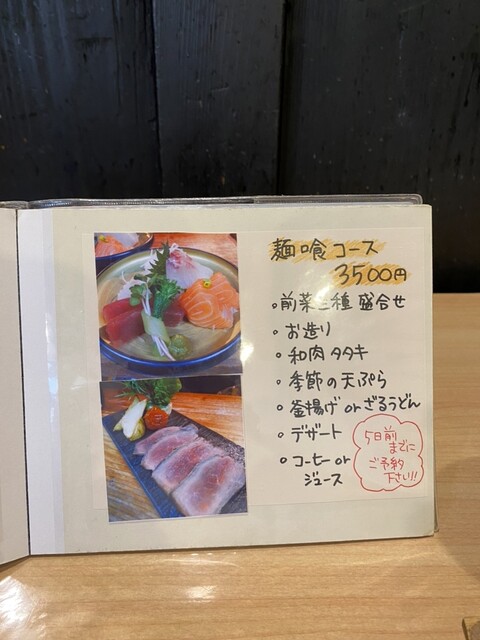 麺喰コース
3500円
・前菜三種盛合せ
・お造り
・和肉タタキ
・季節の天ぷら
・釜揚げorざるうどん
・デザート
・コーヒーor
ジュース
5日前
までに
ご予約
下さい!!